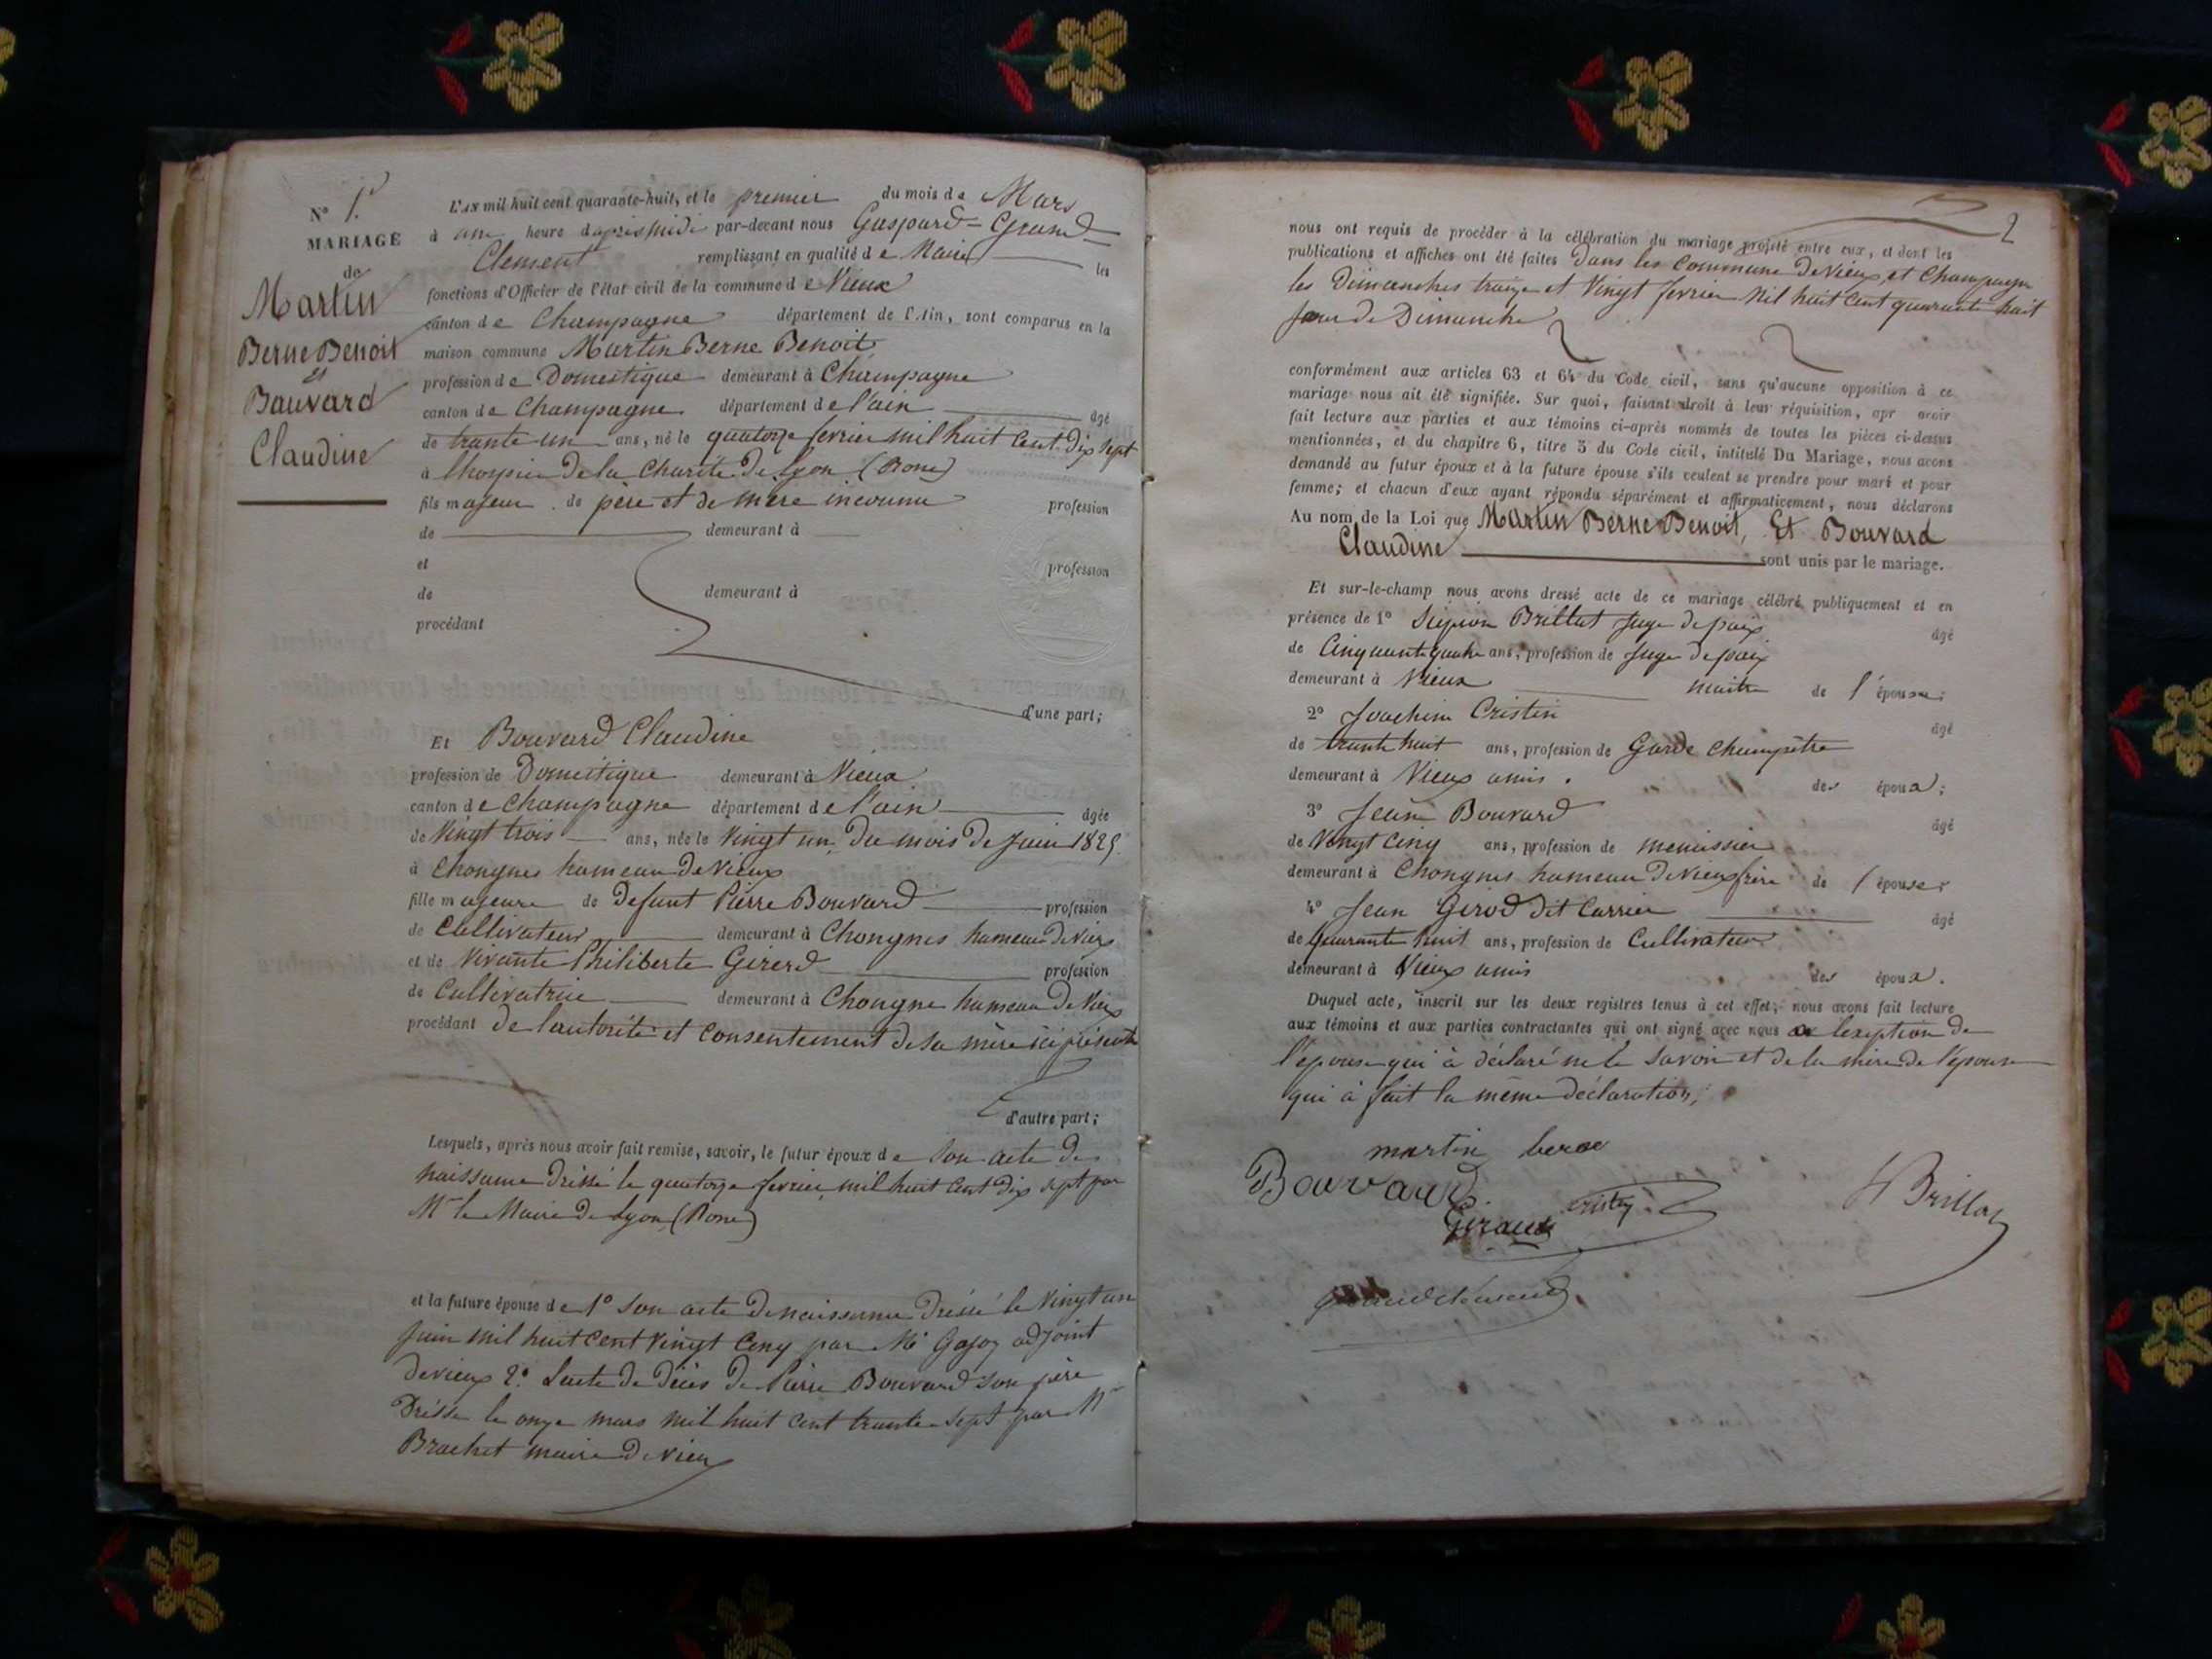 N° 1.er
MARIAGE
de
Martin
Berne Benoit
et
Bouvard
Claudine
L'an mil huit cent quarante-huit, et le premier du mois de Mars
à une heure d'après midi par-devant nous Gaspard Grand
Clement remplissant en qualité de Maire les
fonctions d'Officier de l'état civil de la commune de Vieux
canton de Champagne département de l'Ain, sont comparus en la
maison commune Martin Berne Benoit
profession de Domestique demeurant à Champagne
canton de Champagne département de l'ain âgé
de trante un ans, né le quatorze fevrier mil huit Cent Dix sept
à lhospice De la Charité De Lyon (Rone)
fils majeur de père et de mere inconnu profession
de demeurant à
et profession
de demeurant à
procédant
d'une part;
Et Bouvard Claudine
profession de Domestique demeurant à Vieux
canton de Champagne département de l'ain âgée
de Vingt trois ans, née le Vingt un Du mois De Juin 1825
à Chongnes hameau De Vieux
fille majeure de Defunt Pierre Bouvard profession
de Cultivateur demeurant à Chongnes hameau De Vieux
et de Vivante Philiberte Girerd profession
de Cultivatrice demeurant à Chongne hameau De Vieux
procédant de lautorité et Consentement de sa mère ici présente
d'autre part;
Lesquels, après nous avoir fait remise, savoir, le futur époux de son acte De
naissance Dréssé le quatorze fevrier mil huit Cent Dix sept par
Mr le Maire De Lyon (Rone)
et la future épouse de 1° son acte De naissance Dréssé le Vingt un
Juin mil huit Cent Vingt Cinq par Mr adjoint
De vieux 2° Lacte De Décès De Pierre Bouvard son père
Dréssé le onze mars mil huit Cent trante sept par Mr
Brachet maire De vieux
2
nous ont requis de procéder à la célébration du mariage projeté entre eux, et dont les
publications et affiches ont été faites Dans les Commune De Vieux et Champagne
les Dimanches traize et Vingt fevrier Mil huit Cent quarante huit
Jour De Dimanche
conformément aux articles 63 et 64 du Code civil, sans qu'aucune opposition à ce
mariage nous ait été signifiée. Sur quoi, faisant droit à leur réquisition, apr avoir
fait lecture aux parties et aux témoins ci-après nommés de toutes les pièces ci-dessus
mentionnées, et du chapitre 6, titre 5 du Code civil, intitulé Du Mariage, nous avons
demandé au futur époux et à la future épouse s'ils veulent se prendre pour mari et pour
femme; et chacun d'eux ayant répondu séparément et affirmativement, nous déclarons
Au nom de la Loi que Martin Berne Benoit, Et Bouvard
Claudine sont unis par le mariage.
Et sur-le-champ nous avons dressé acte de ce mariage célébré publiquement et en
présence de 1° Sipion Brillat Juge De paix âgé
de Cinquante quatre ans, profession de Juge De paix
demeurant à Vieux maitre de l'épouse;
2° Joachim Cristin âgé
de trante huit ans, profession de Garde Champètre
demeurant à Vieux amis des époux;
3° Jean Bouvard âgé
de Vingt Cinq ans, profession de menuissier
demeurant à Chongnes hameau De Vieux frère de l'épouse;
4° Jean Girod Dit Carrier âgé
de quarante huit ans, profession de Cultivateur
demeurant à Vieux amis des époux.
Duquel acte, inscrit sur les deux registres tenus à cet effet, nous avons fait lecture
aux témoins et aux parties contractantes qui ont signé avec nous a lexeption de
l'épouse qui à déclaré ne le savoir et de la mère De l'épouse
qui à fait la même déclaration;
martin berne
Bouvard
cristin
Brillat
Giraud
grand clement